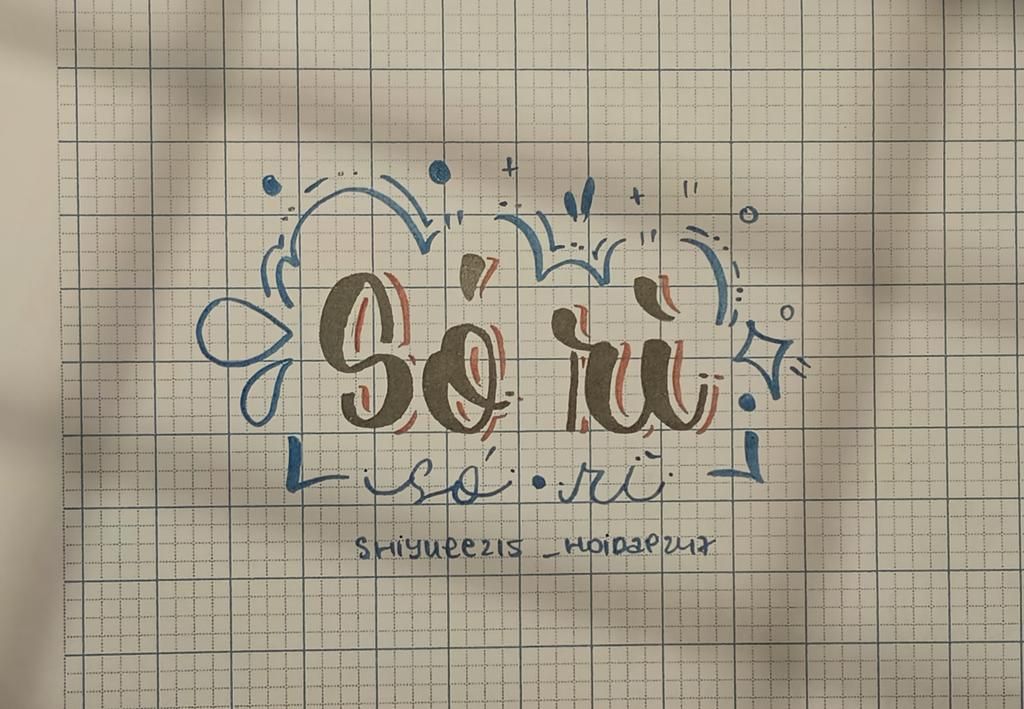 Só rì
só · rì
SHiYUPee215 _HoiDaP247